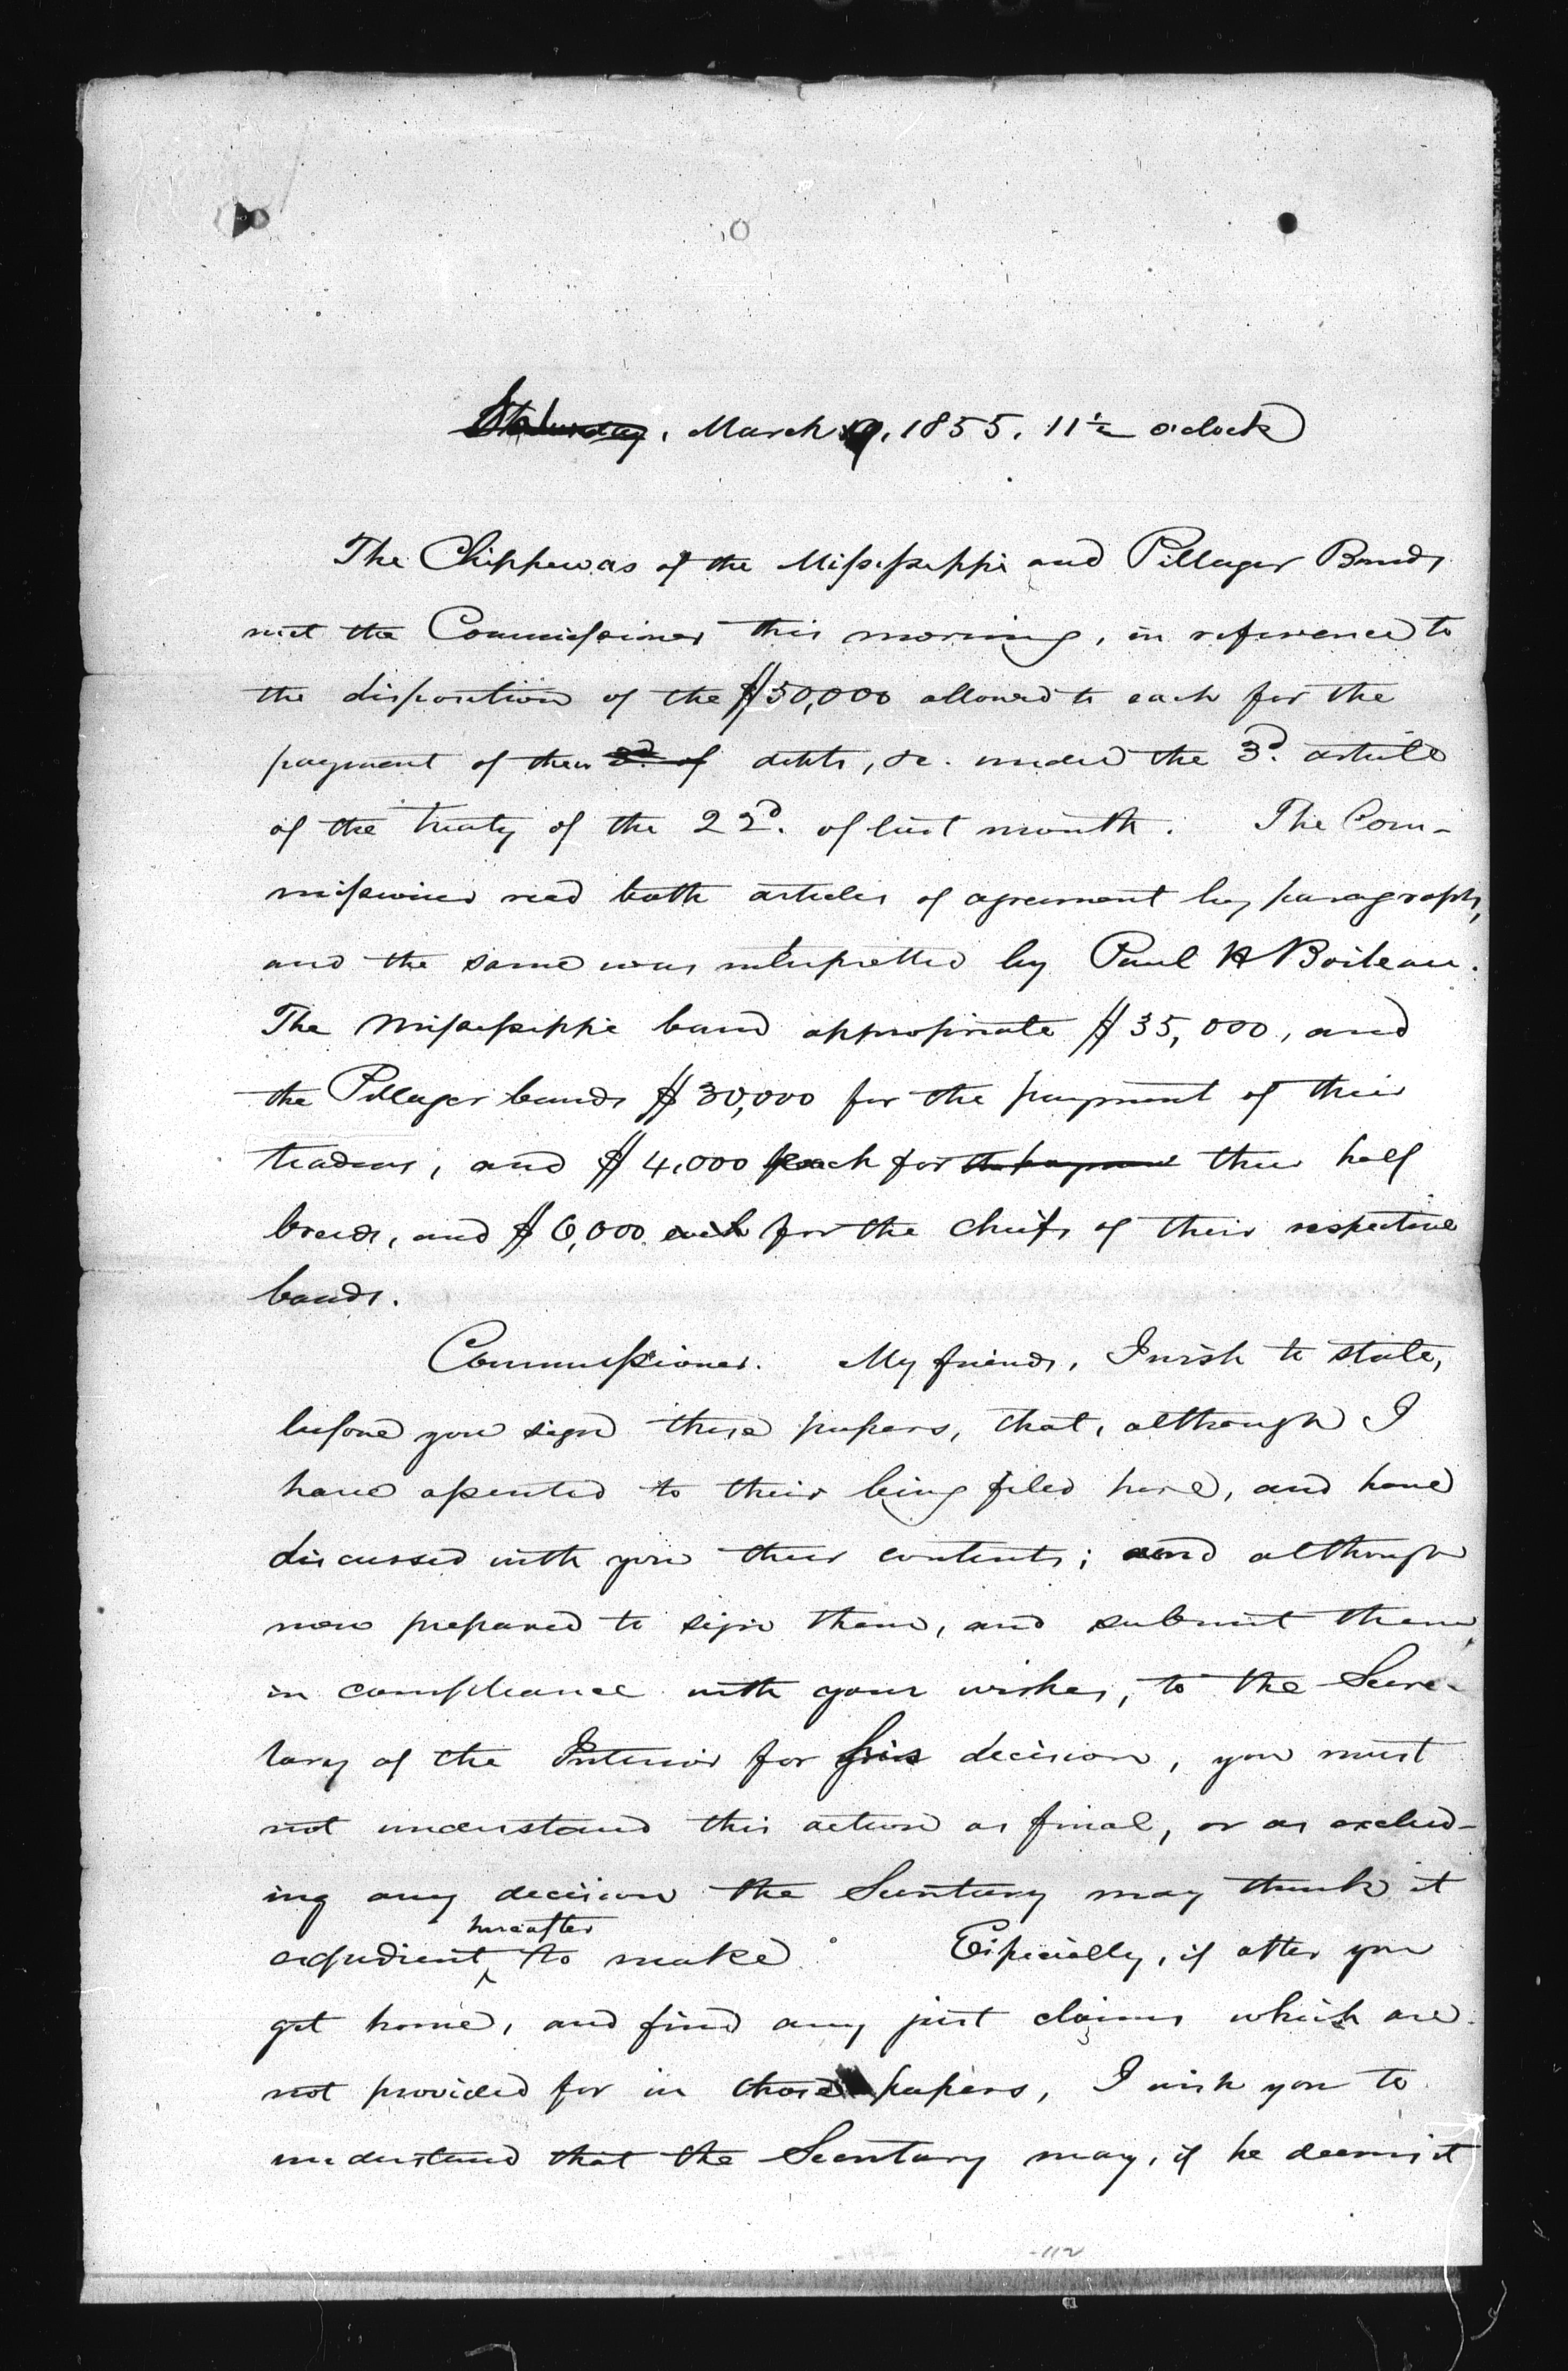 Saturday, March 19, 1855. 11½ o'clock
The Chippewas of the Mississippi and Pillager Bands
met the Commissioner this morning, in reference to
the disposition of the $50,000 allowed to each for the
payment of their 3d. of debts, &c. under the 3d. article
of the treaty of the 22d. of last month. The Com-
missioner read both articles of agreement by paragraphs,
and the same was interpretted by Paul H Boileau.
The Mississippi band appropriate $35,000, and
the Pillager bands $30,000 for the payment of their
traders, and $4,000 each for the payment their half
breeds, and $6,000 each for the chiefs of their respective
bands.
Commissioner. My friends, I wish to state,
before you sign these papers, that, although I
have assented to their being filed here, and have
discussed with you their contents; and although
now prepared to sign them, and submit them,
in compliance with your wishes, to the Secre-
tary of the Interior for his decision, you must
not understand this action as final, or as exclud-
ing any decision the Secretary may think it
hereafter
expedient to make. Especially, if after you
get home, and find any just claims which are
not provided for in those papers, I wish you to
understand that the Secretary may, if he deems it
112